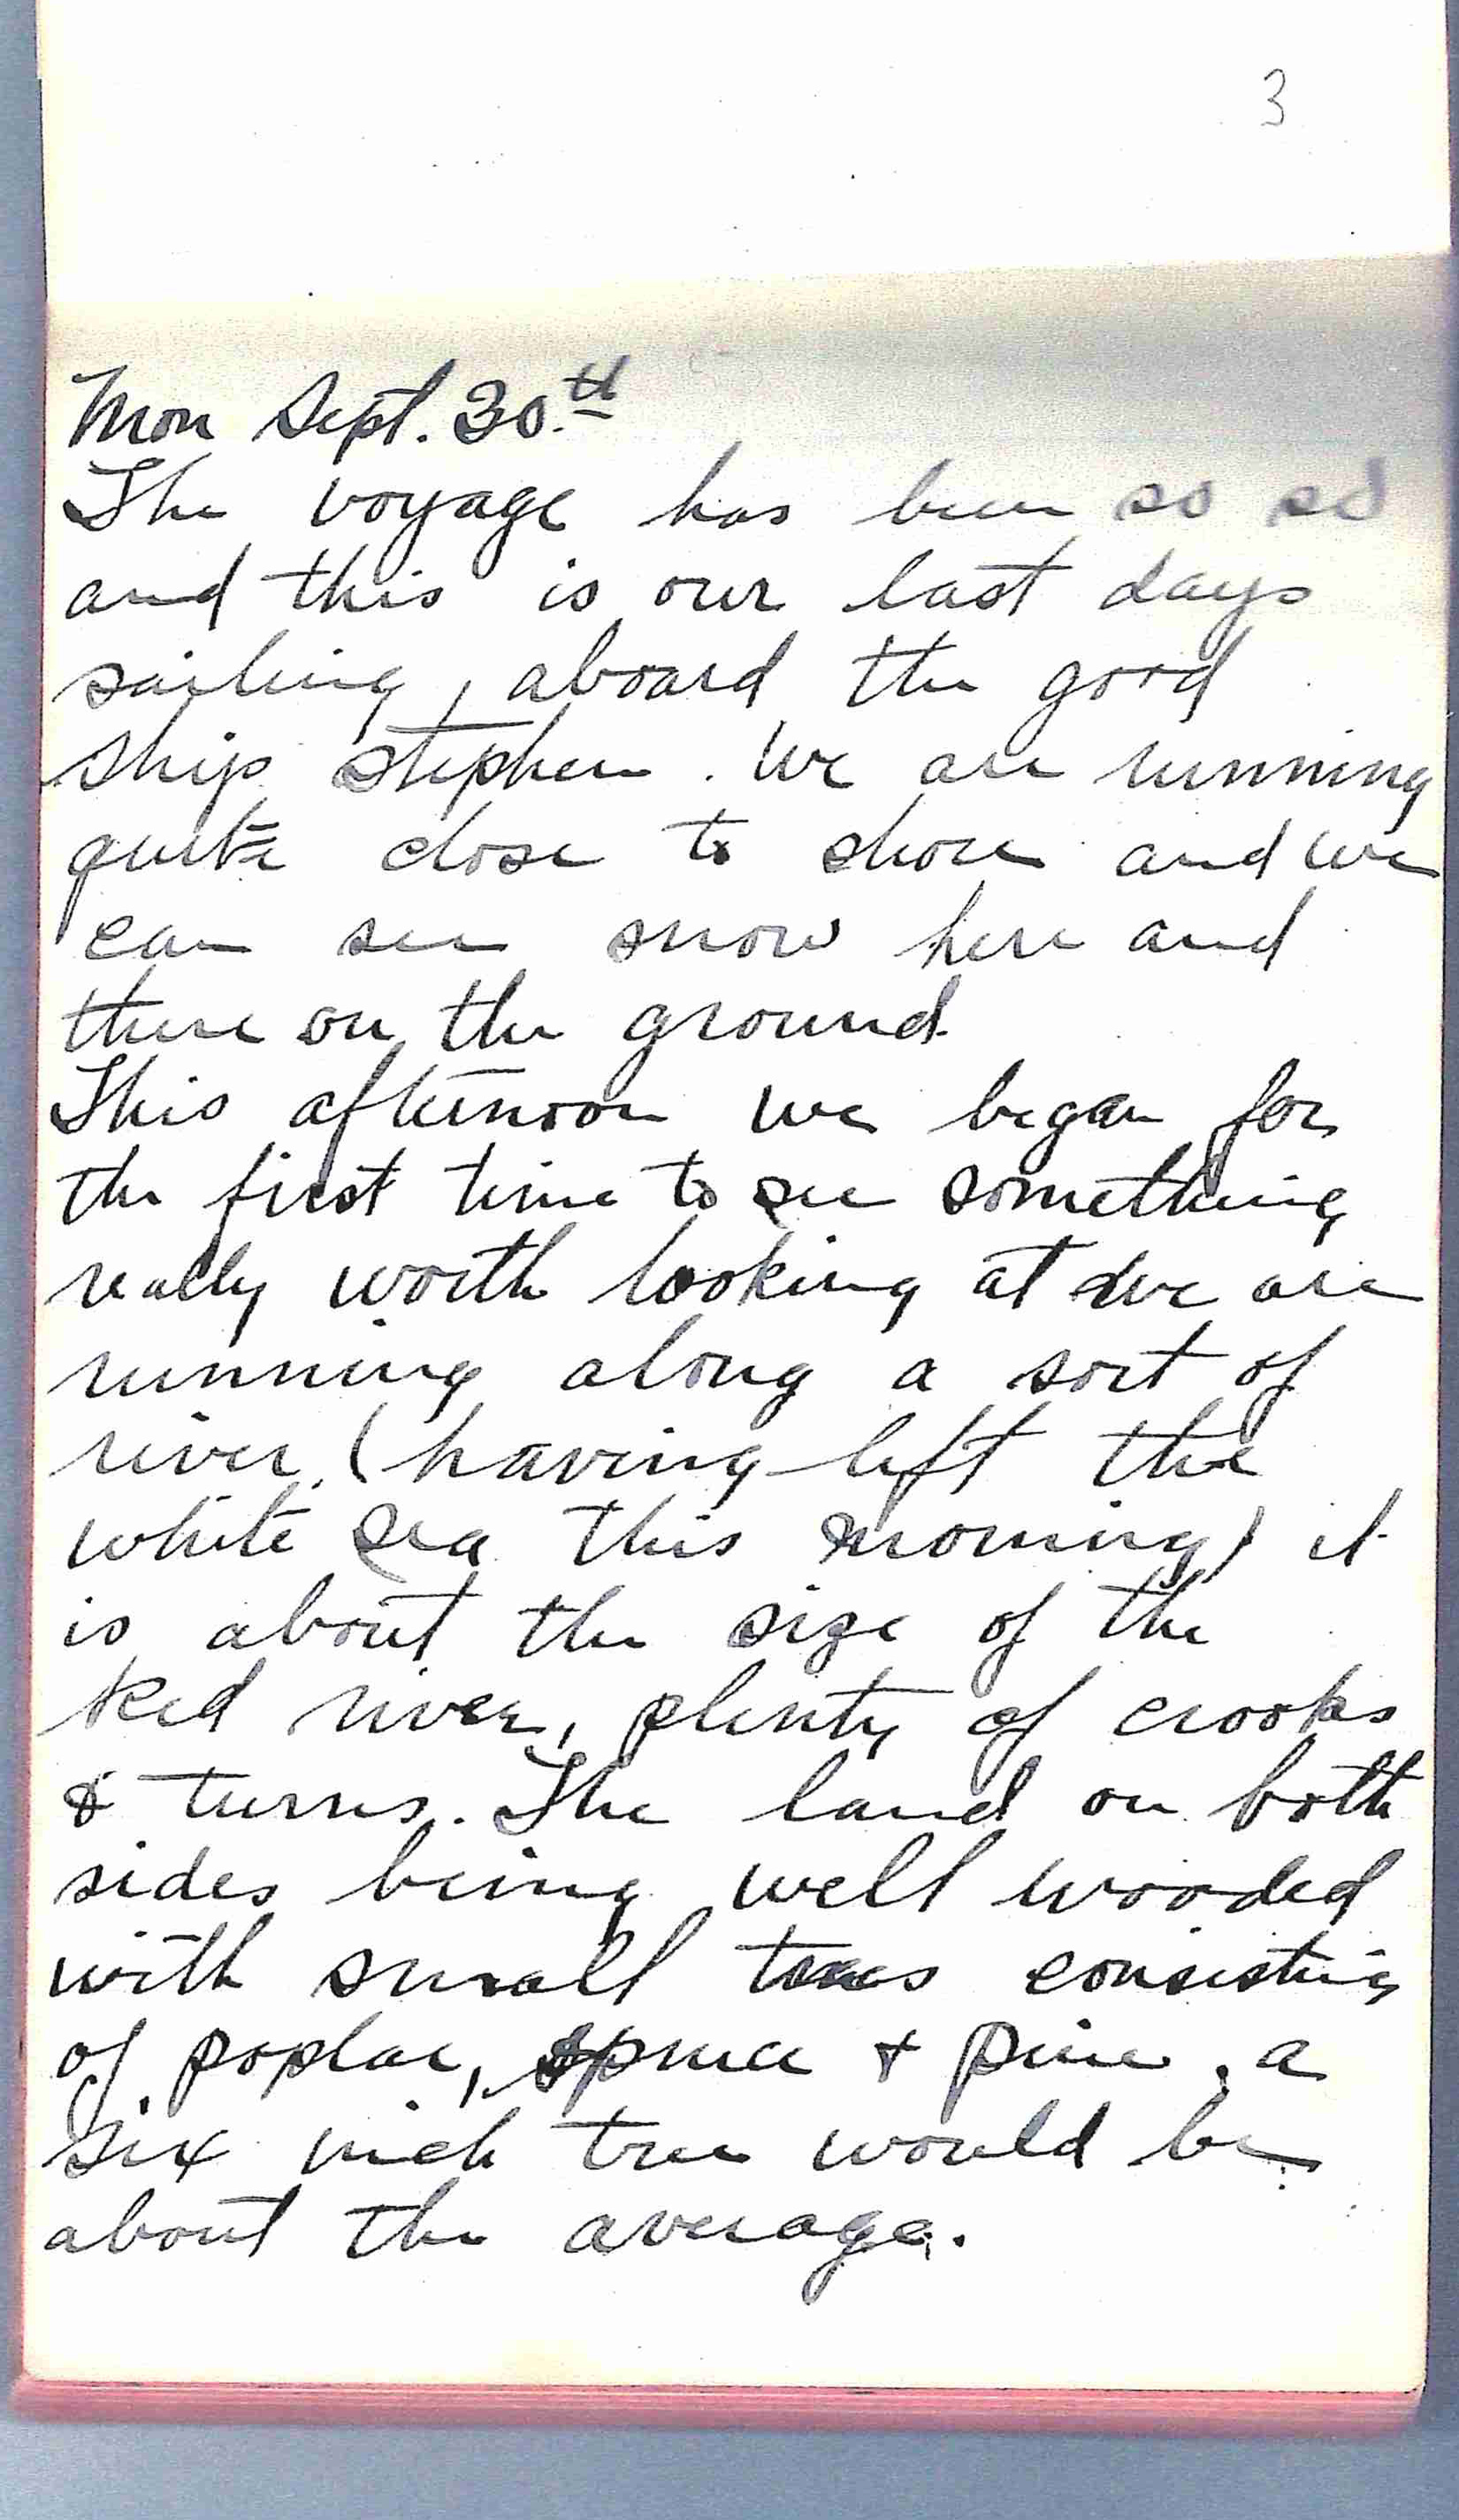 3
Mon Sept. 30.th
The voyage has been so so
and this is our last days
sailing, aboard the good
ship Stephen. We are running
quite close to shore and we
can see snow here and
there on the ground.
This afternoon we began for
the first time to see something
really worth looking at we are
running along a sort of
river, (having left the
white sea this morning) it
is about the size of the
Red river, plenty of crooks
& turns. The land on both
sides being well wooded
with small trees consisting
of poplar, spruce & pine. a
six inch tree would be
about the average.